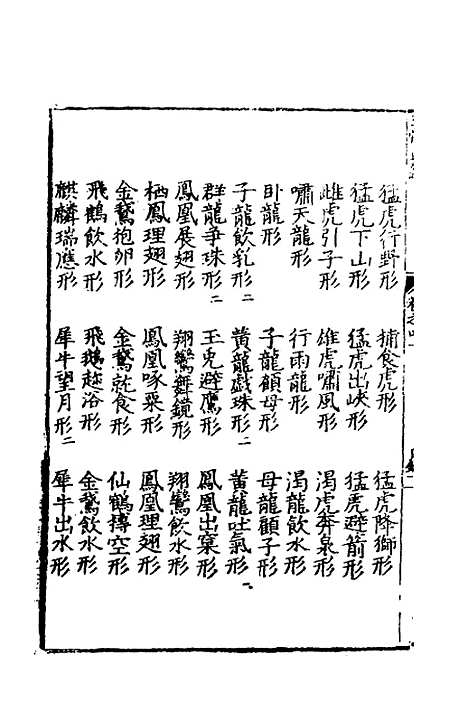 猛虎行野形 捕食虎形 猛虎降獅形
猛虎下山形 猛虎出峽形 猛虎避箭形
雌虎引子形 雄虎嘯風形 渴虎奔泉形
嘯天龍形 行雨龍形 渴龍飲水形
卧龍形 子龍顧母形 母龍顧子形
子龍飲乳形二 黃龍戲珠形二 黃龍吐氣形
群龍爭珠形二 玉兎避鷹形 鳳凰出窠形
鳳凰展翅形 翔鸞舞鏡形 翔鸞飲水形
栖鳳理翅形 鳳凰啄粟形 鳳凰理翅形
金鵞抱卵形 金鵞就食形 仙鶴摶空形
飛鶴飲水形 飛鵝趂浴形 金鵞飲水形
麒麟瑞應形 犀牛望月形二 犀牛出水形